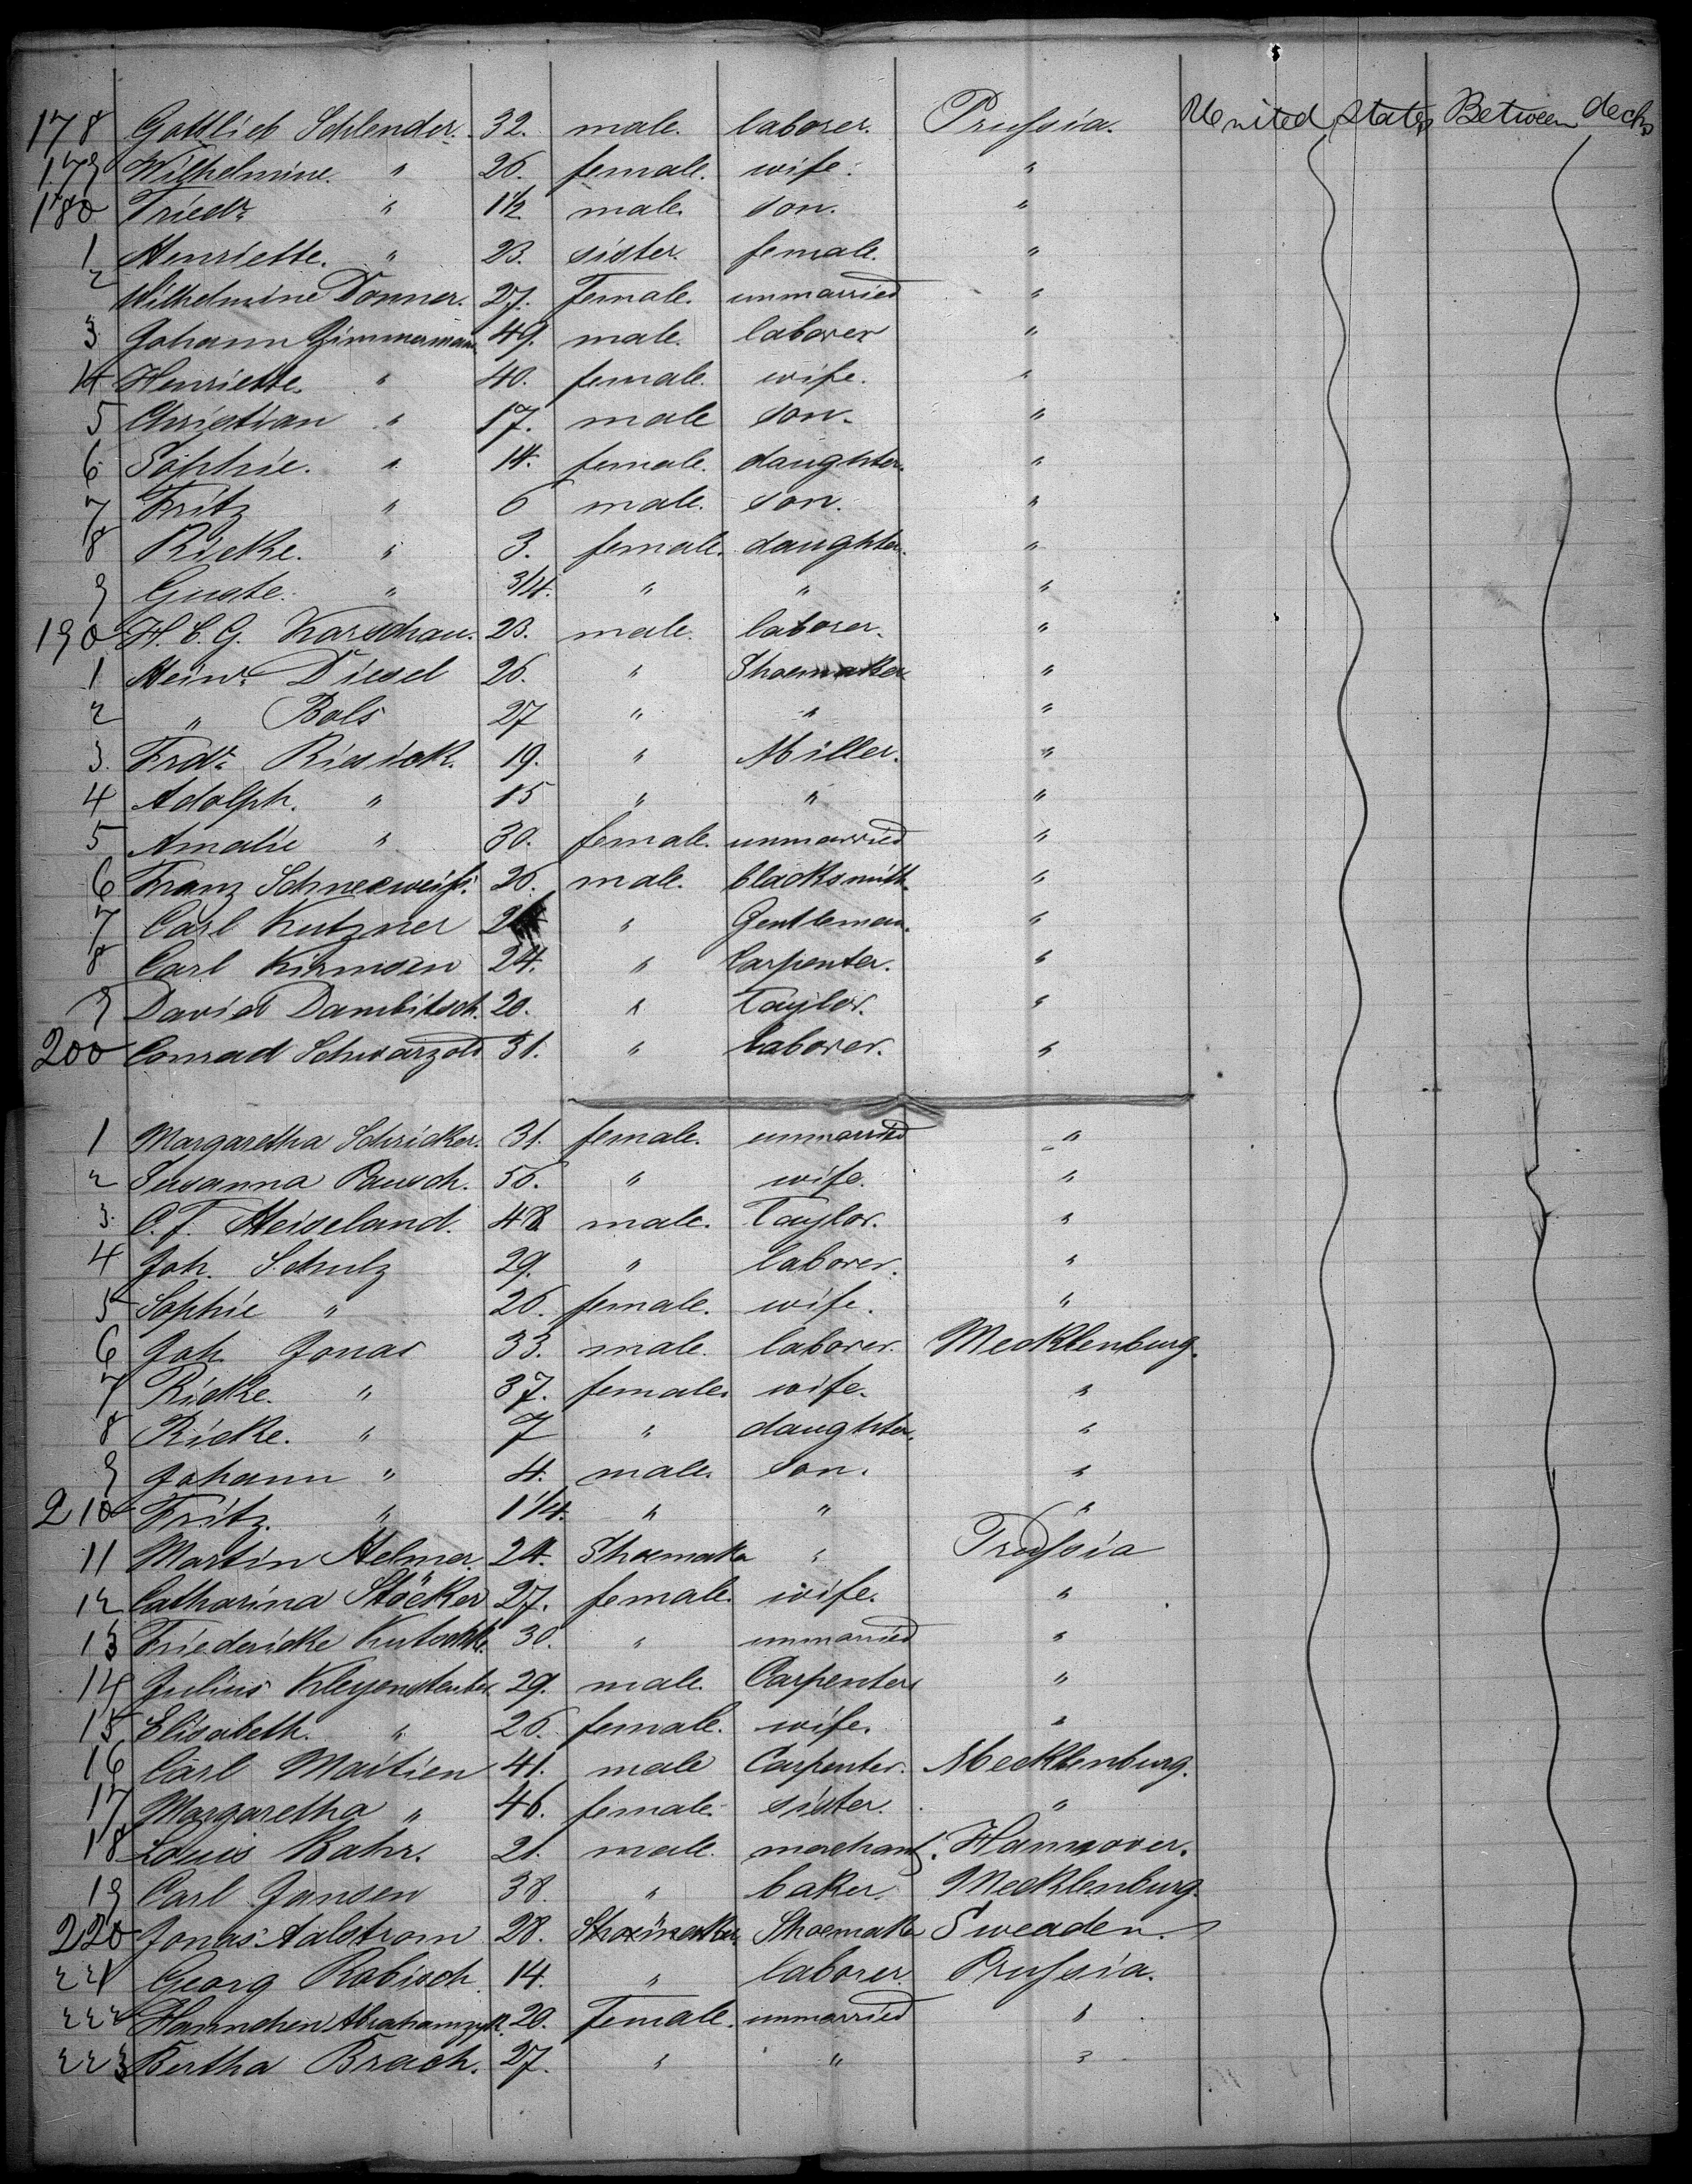 178 Gottlieb Schlender. 32. male. laborer. Prussia. United States Between decks
179 Wilhelmine. " 26. female. wife. "
180 Friedr. " 1 1/2 male. son. "
1 Henriette. " 23. sister. female. "
2 Wilhelmine Donner. 27. Female. unmarried "
3 Johann Zimmermann 49. male. laborer "
4 Henriette. " 40. female. wife. "
5 Christian " 17. male son. "
6 Sophie. " 14. female. daughter. "
7 Fritz " 6 male. son. "
8 Rieke. " 3. female. daughter. "
9 Guste. " 3/4. " " "
190 H. C. G. Karschau. 23. male. laborer. "
1 Heinr. Diesel 26. " Shoemaker "
2 " Bols 27 " " "
3. Frdr. Riesick. 19. " Miller. "
4 Adolph. " 15 " " "
5 Amalie " 30. female. unmarried "
6 Franz Schneeweiss. 26. male. blacksmith. "
7 Carl Kutzner " Gentleman. "
8 Carl Kirmsen 24. " Carpenter. "
9 David Dambitsch. 20. " Taylor. "
200 Conrad Schwarzott 31. " Laborer. "
1 Margaretha Schricker. 31. female. unmarried "
2 Susanna Pausch. 56. " wife. "
3. C. F. Heiseland. 48 male. Taylor. "
4 Joh. Schulz 29. " laborer. "
5 Sophie " 26. female. wife. "
6 Joh. Jonas 33. male. laborer. Mecklenburg.
7 Rieke. " 37. female. wife. "
8 Rieke. " 7 " daughter. "
9 Johann " 4. male. son. "
210 Fritz. " 1 1/4. " " "
11 Martin Helmer. 24. Shoemaker " Prussia
12 Catharina Stöcker 27. female. wife. "
13 Friedericke 30. " unmarried "
14 Julius 29. male. Carpenter "
15 Elisabeth. " 26. female. wife. "
16 Carl Maitien 41. male Carpenter. Mecklenburg.
17 Margaretha " 46. female. sister. "
18 Louis Bahr. 21. male. merchant. Hannover.
19 Carl Jansen 38. " baker. Mecklenburg.
220 Jonas Aalstrom 28. Shoemaker. Shoemaker Sweaden.
221 Georg Robisch. 14. " laborer. Prussia.
222 Hannchen Abrahamzyk. 20. Female. unmarried "
223 Bertha Brach. 27. " " "